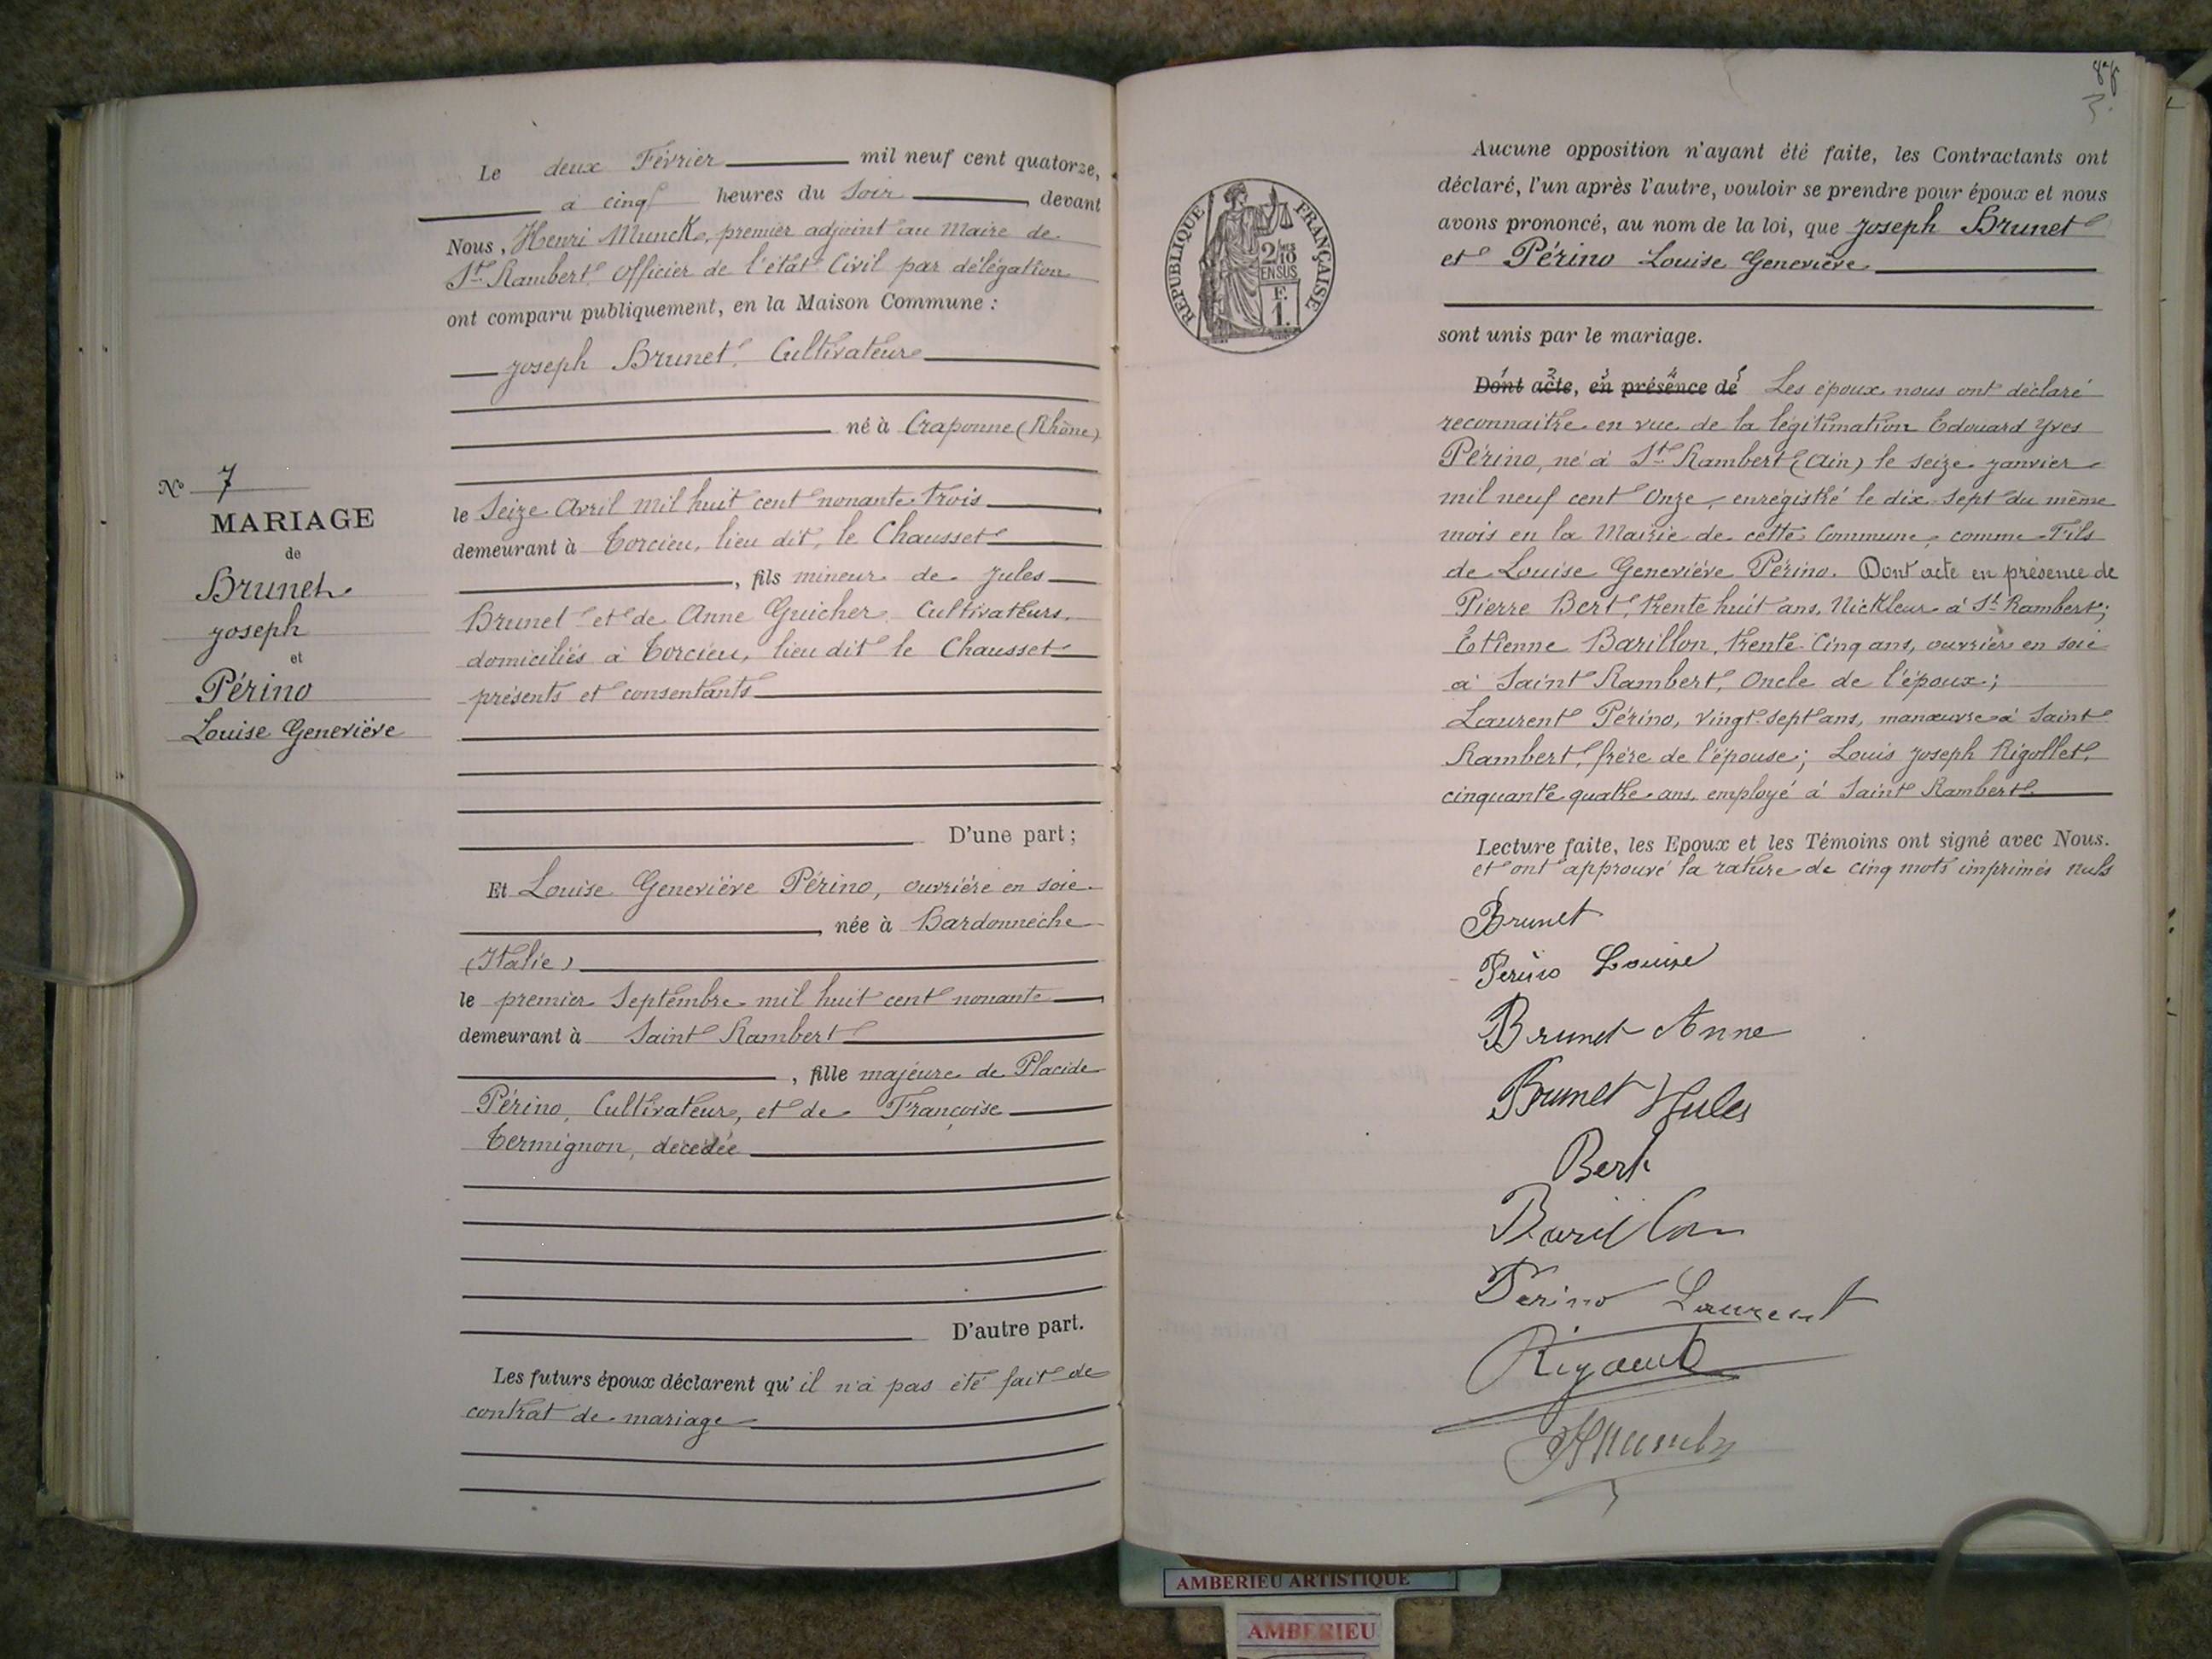 Le deux Février mil neuf cent quatorze,
à cinq heures du Soir, devant
Nous, Henri Munck, premier adjoint au Maire de
St Rambert, Officier de l'état Civil par délégation
ont comparu publiquement, en la Maison Commune :
Joseph Brunet, Cultivateur
né à Craponne (Rhône)
le Seize Avril mil huit cent nonante trois
demeurant à Torcieu, lieu dit, le Chausset
, fils mineur de Jules
Brunet et de Anne Guicher, Cultivateurs,
domiciliés à Torcieu, lieu dit le Chausset
présents et consentants
D'une part ;
Et Louise Geneviève Périno, ouvrière en soie
, née à Bardonnèche
(Italie)
le premier Septembre mil huit cent nonante
demeurant à Saint Rambert
, fille majeure de Placide
Périno, Cultivateur, et de Françoise
Termignon, décédée
D'autre part.
Les futurs époux déclarent qu'il n'a pas été fait de
contrat de mariage
No 7
MARIAGE
de
Brunet
Joseph
et
Périno
Louise Geneviève
REPUBLIQUE FRANÇAISE
2/10es
EN SUS
F.
1.
Aucune opposition n'ayant été faite, les Contractants ont
déclaré, l'un après l'autre, vouloir se prendre pour époux et nous
avons prononcé, au nom de la loi, que Joseph Brunet
et Périno Louise Geneviève
sont unis par le mariage.
1 2 3 4 5
Dont acte, en présence de Les époux nous ont déclaré
reconnaître en vue de la légitimation Edouard Yves
Périno, né à St Rambert (Ain) le seize janvier
mil neuf cent Onze, enregistré le dix-sept du même
mois en la Mairie de cette Commune, comme Fils
de Louise Geneviève Périno. Dont acte en présence de
Pierre Bert, trente huit ans, Nickleur à St Rambert;
Etienne Barillon, trente-cinq ans, ouvrier en soie
à Saint Rambert, Oncle de l'époux;
Laurent Périno, vingt-sept ans, manœuvre à Saint
Rambert, frère de l'épouse; Louis Joseph Rigollet,
cinquante quatre ans, employé à Saint Rambert.
Lecture faite, les Epoux et les Témoins ont signé avec Nous.
et ont approuvé la rature de cinq mots imprimés nuls
Brunet
Périno Louise
Brunet Anne
Brunet Jules
Bert
Barillon
Périno Laurent
AMBERIEU ARTISTIQUE
AMBERIEU